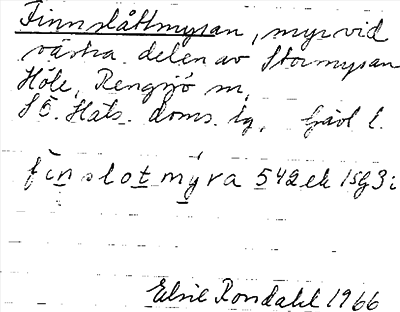 Finnslåttmyran, myr vid
västra delen av Stormyran
Höle, Rengsjö sn,
SÖ. Häls. doms. lg, Gävl l.
finslotmyra 542ek 15G3i
Elsie Rondahl 1966